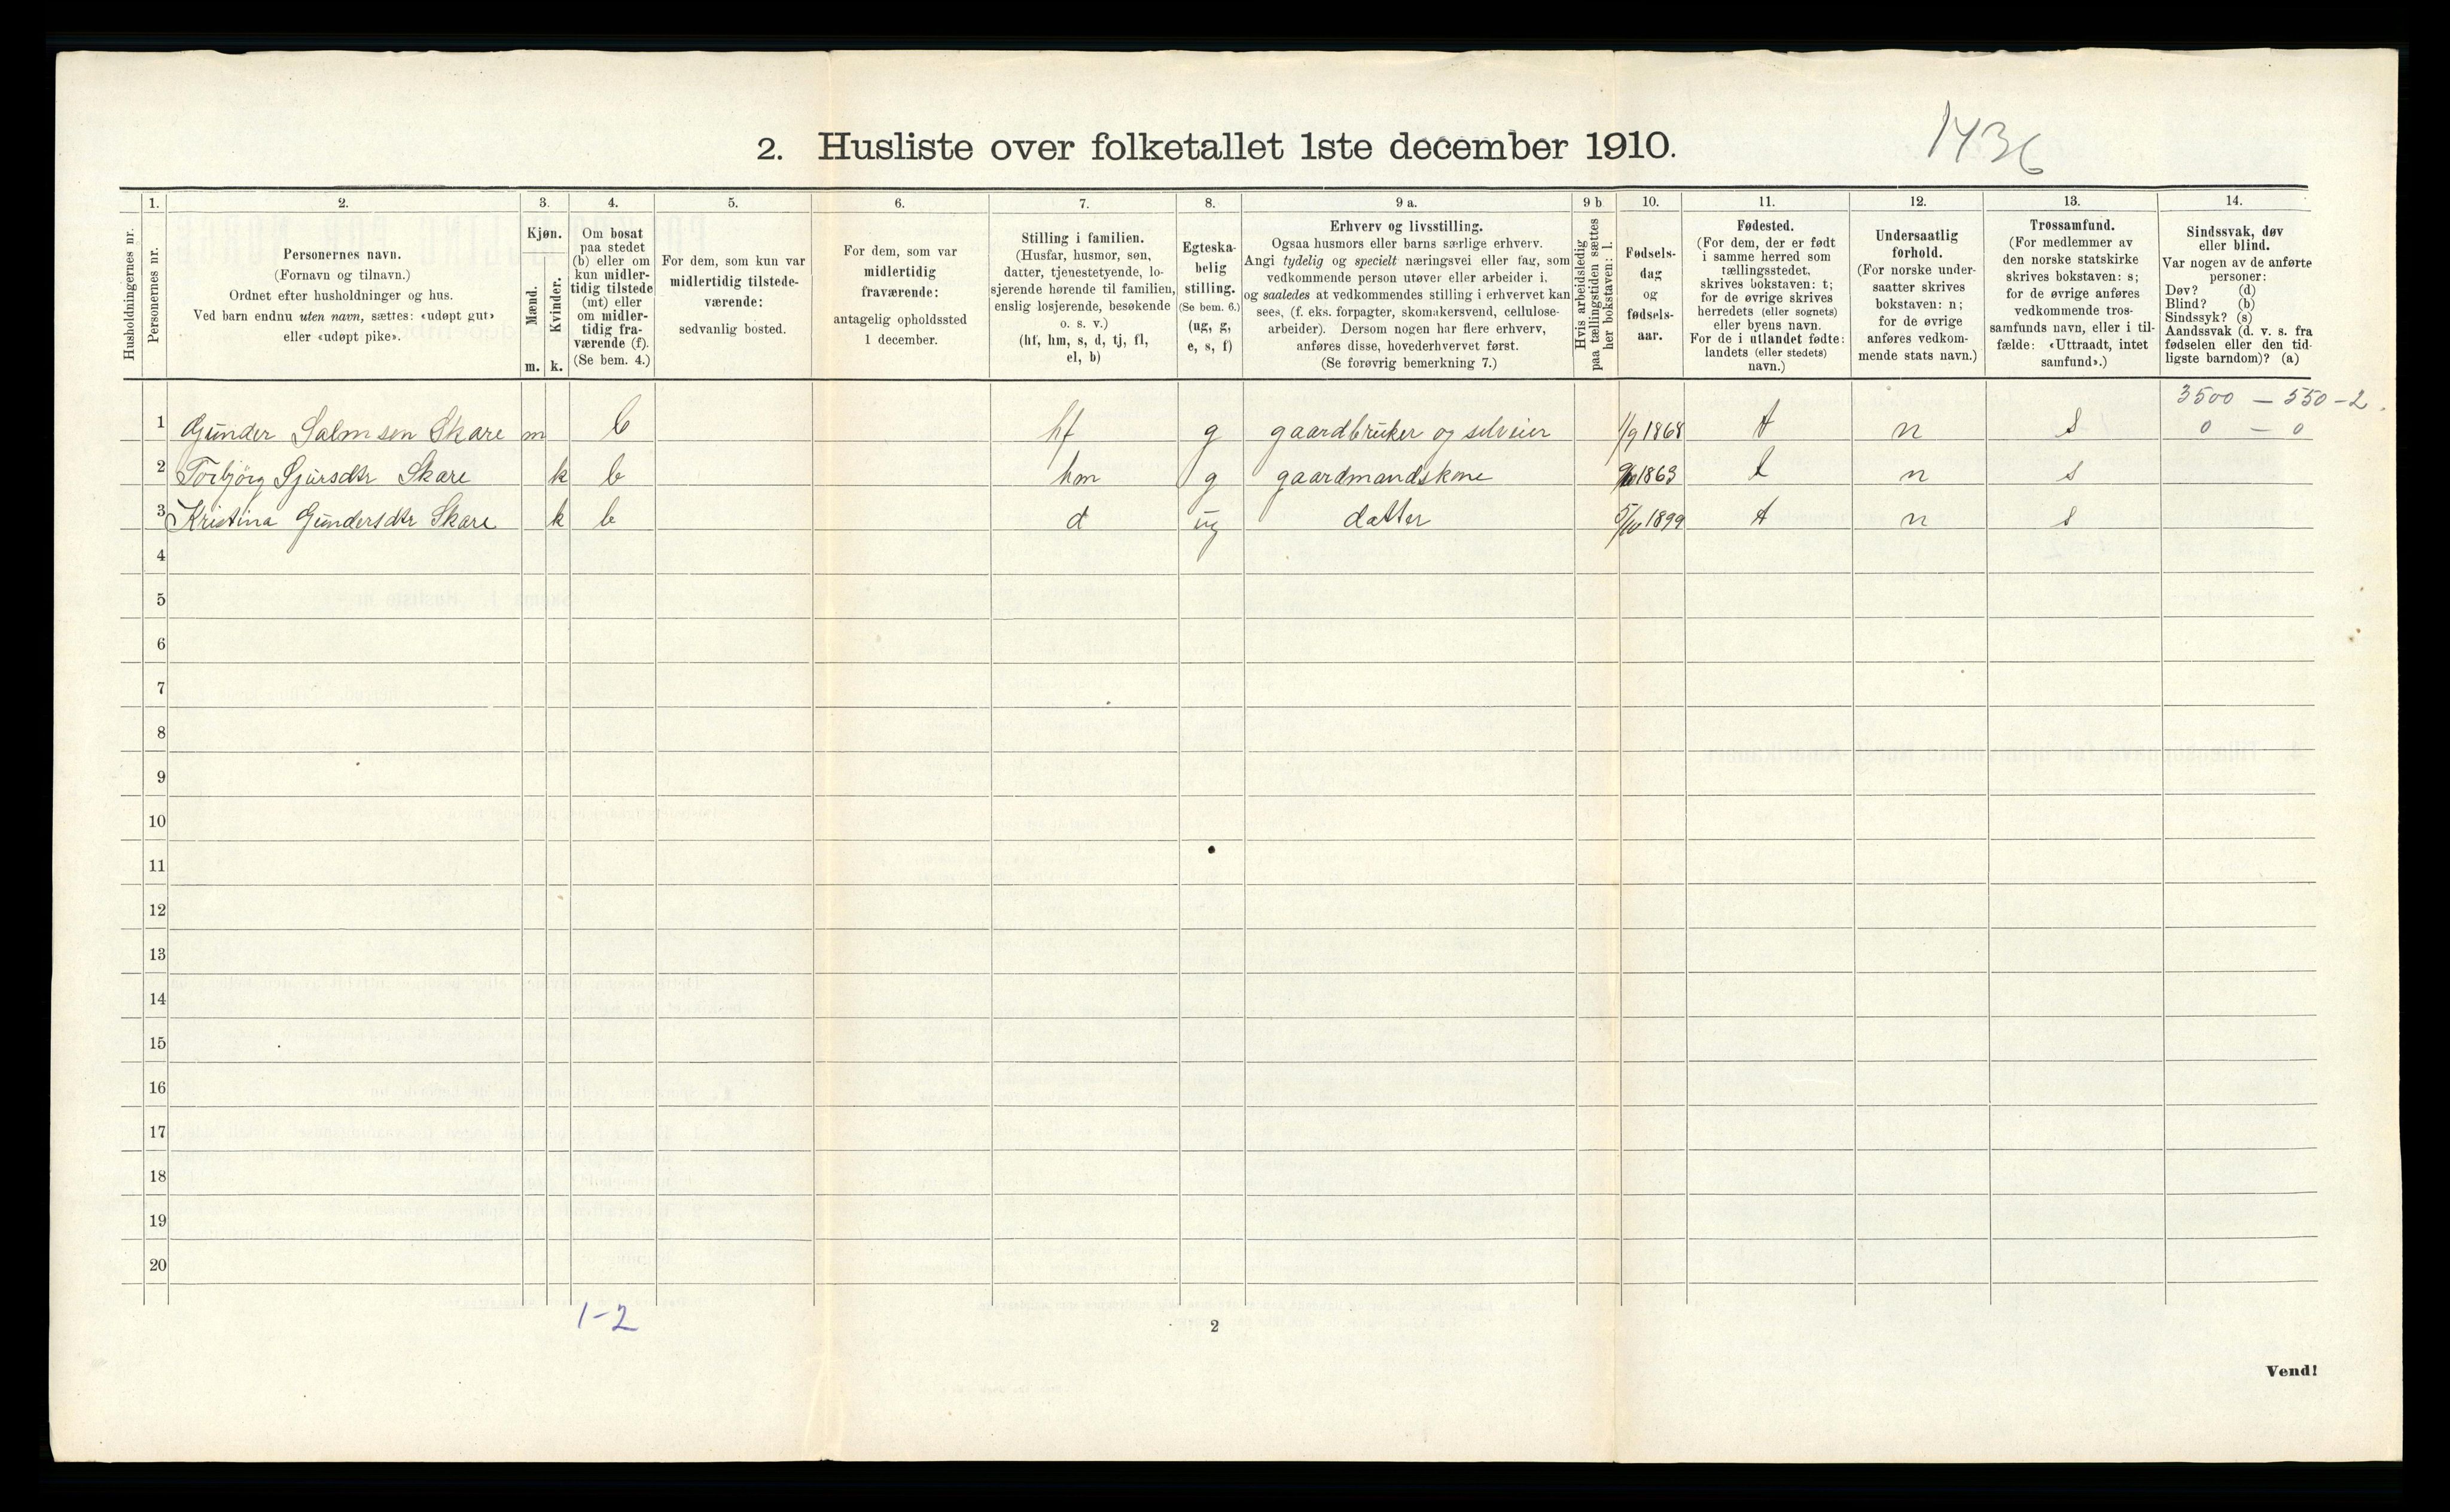 2. Husliste over folketallet 1ste december 1910.
1436
Husholdningernes nr.
1.
Personernes nr.
2.
Personernes navn.
(Fornavn og tilnavn.)
Ordnet efter husholdninger og hus.
Ved barn endnu uten navn, sættes: «udøpt gut»
eller «udøpt pike».
3.
Kjøn.
Mænd.
Kvinder.
m. k.
4.
Om bosat
paa stedet
(b) eller om
kun midler-
tidig tilstede
(mt) eller
om midler-
tidig fra-
værende (f).
(Se bem. 4.)
5.
For dem, som kun var
midlertidig tilstede-
værende:
sedvanlig bosted.
6.
For dem, som var
midlertidig
fraværende:
antagelig opholdssted
1 december.
7.
Stilling i familien.
(Husfar, husmor, søn,
datter, tjenestetyende, lo-
sjerende hørende til familien,
enslig losjerende, besøkende
o. s. v.)
(hf, hm, s, d, tj, fl,
el, b)
8.
Egteska-
belig
stilling.
(Se bem. 6.)
(ug, g,
e, s, f)
9 a.
Erhverv og livsstilling.
Ogsaa husmors eller barns særlige erhverv.
Angi tydelig og specielt næringsvei eller fag, som
vedkommende person utøver eller arbeider i,
og saaledes at vedkommendes stilling i erhvervet kan
sees, (f. eks. forpagter, skomakersvend, cellulose-
arbeider). Dersom nogen har flere erhverv,
anføres disse, hovederhvervet først.
(Se forøvrig bemerkning 7.)
9 b
Hvis arbeidsledig
paa tællingstiden sættes
her bokstaven: l.
10.
Fødsels-
dag
og
fødsels-
aar.
11.
Fødested.
(For dem, der er født
i samme herred som
tællingsstedet,
skrives bokstaven: t;
for de øvrige skrives
herredets (eller sognets)
eller byens navn.
For de i utlandet fødte:
landets (eller stedets)
navn.)
12.
Undersaatlig
forhold.
(For norske under-
saatter skrives
bokstaven: n;
for de øvrige
anføres vedkom-
mende stats navn.)
13.
Trossamfund.
(For medlemmer av
den norske statskirke
skrives bokstaven: s;
for de øvrige anføres
vedkommende tros-
samfunds navn, eller i til-
fælde: «Uttraadt, intet
samfund».)
14.
Sindssvak, døv
eller blind.
Var nogen av de anførte
personer:
Døv? (d)
Blind? (b)
Sindssyk? (s)
Aandssvak (d. v. s. fra
fødselen eller den tid-
ligste barndom)? (a)
3500 - 550 - 2.
1 Gunder Salmsen Skare m b hf g gaardbruker og selveier 1/9 1868 t n s 0 - 0
2 Torbjörg Sjursdtr Skare k b hm g gaardmandskone 1863 t n s
3 Kristina Gundersdtr Skare k b d ug datter 5/10 1899 t n s
4
5
6
7
8
9
10
11
12
13
14
15
16
17
18
19
20
1-2
2
Vend!